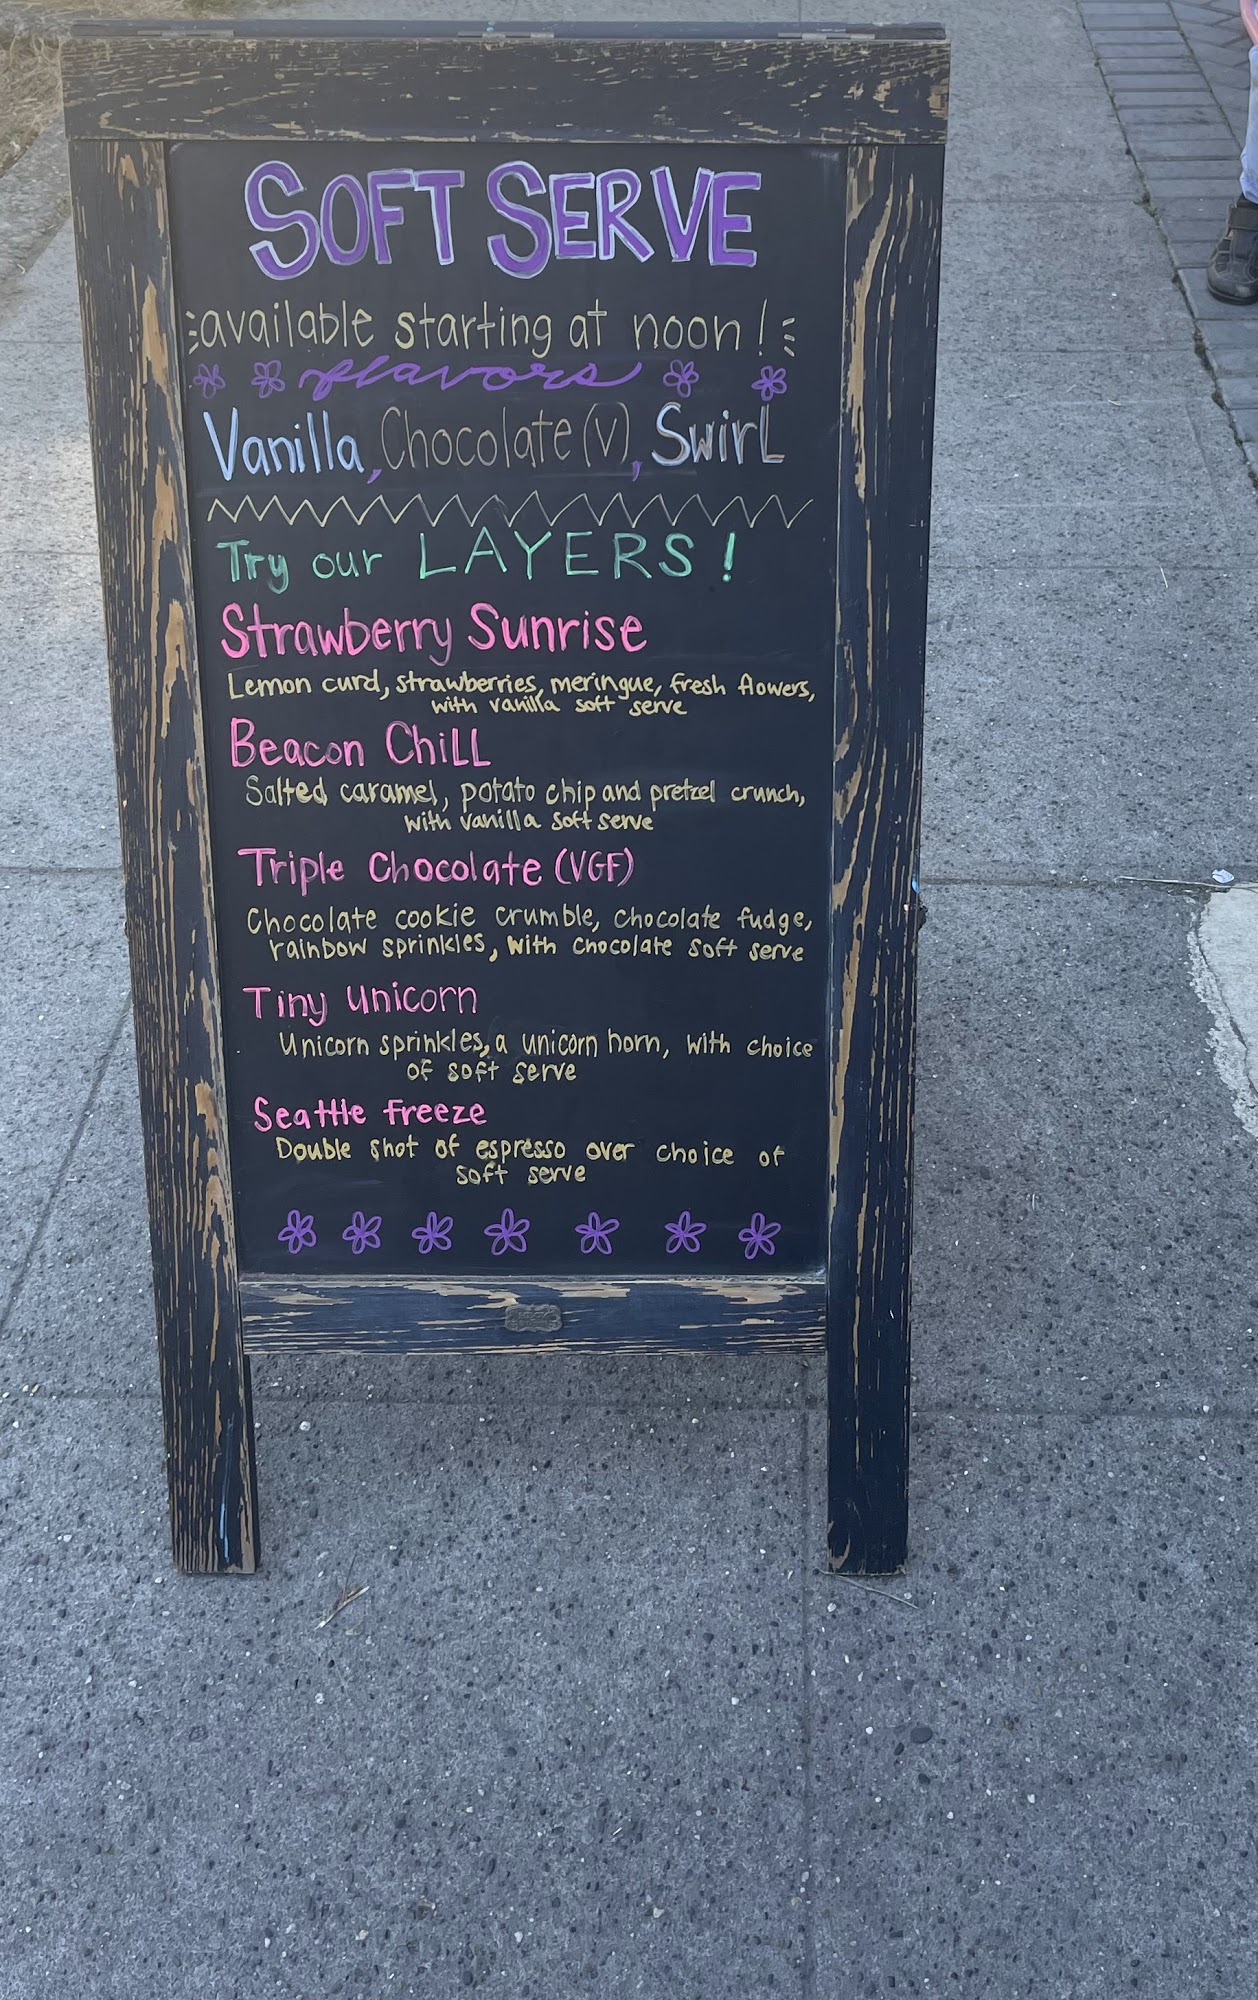 SOFT SERVE
available starting at noon!
flavors
Vanilla, Chocolate (V), Swirl
Try our LAYERS!
Strawberry Sunrise
Lemon curd, strawberries, meringue, fresh flowers,
with vanilla soft serve
Beacon Chill
Salted caramel, potato chip and pretzel crunch,
with vanilla soft serve
Triple Chocolate (VGF)
Chocolate cookie crumble, chocolate fudge,
rainbow sprinkles, with chocolate soft serve
Tiny Unicorn
Unicorn sprinkles, a unicorn horn, with choice
of soft serve
Seattle Freeze
Double shot of espresso over choice of
soft serve